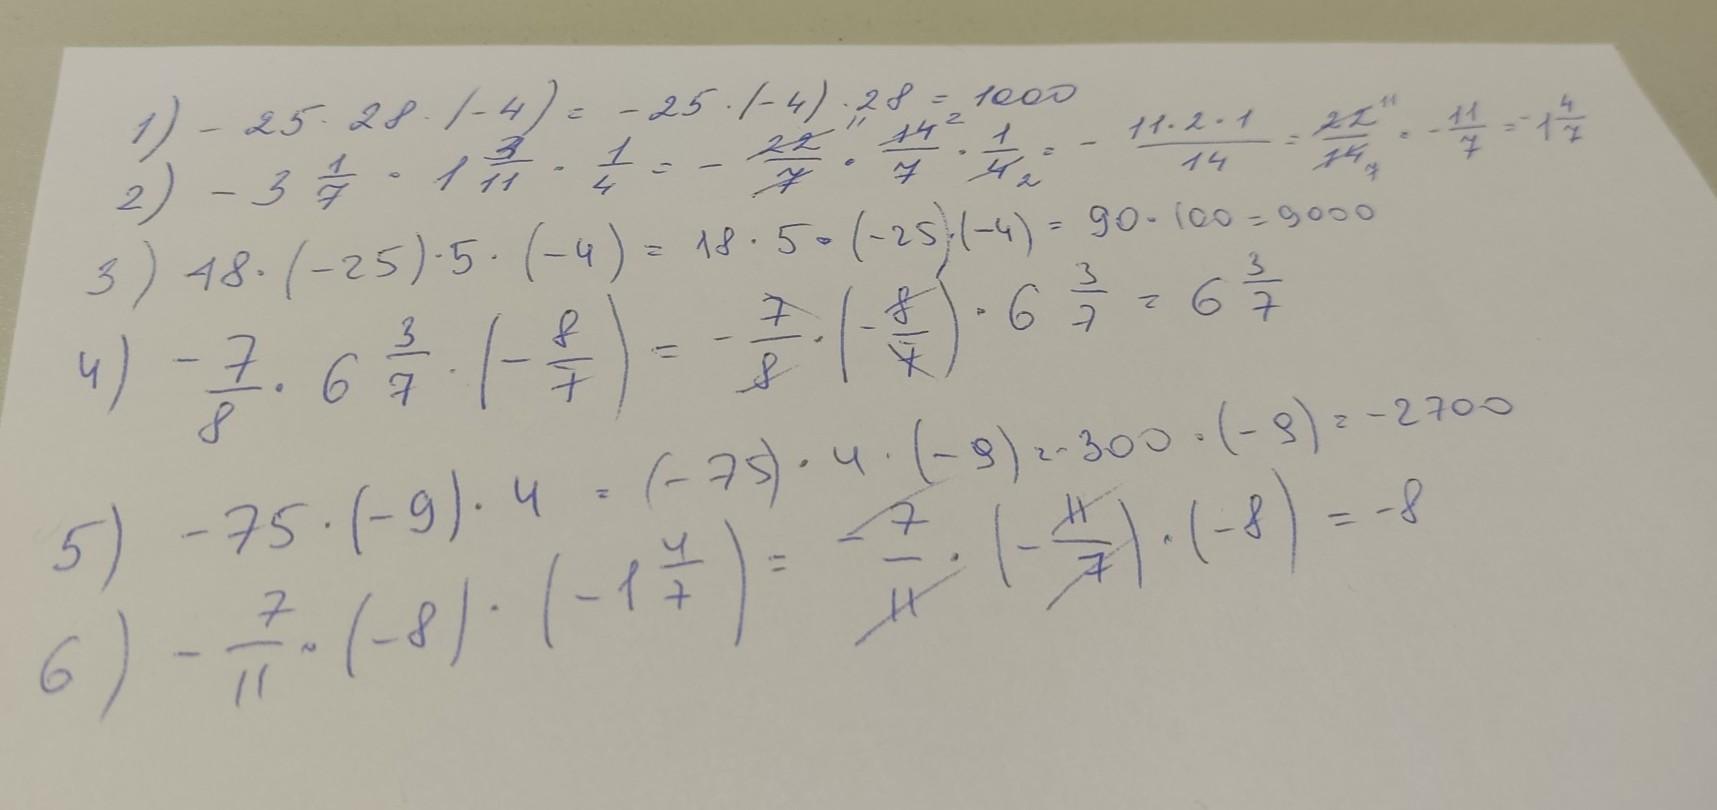 1) - 25 · 28 · (-4) = - 25 · (-4) · 28 = 1000
2) - 3 1/7 · 1 3/11 · 1/4 = - 22/7 · 14/7 · 1/4 = - 11·2·1/14 = 22/14 = - 11/7 = -1 4/7
3) 18 · (-25) · 5 · (-4) = 18 · 5 · (-25) · (-4) = 90 · 100 = 9000
4) - 7/8 · 6 3/7 · (- 8/7) = - 7/8 · (- 8/7) · 6 3/7 = 6 3/7
5) - 75 · (-9) · 4 = (-75) · 4 · (-9) = -300 · (-9) = -2700
6) - 7/11 · (-8) · (-1 4/7) = - 7/11 · (- 11/7) · (-8) = -8